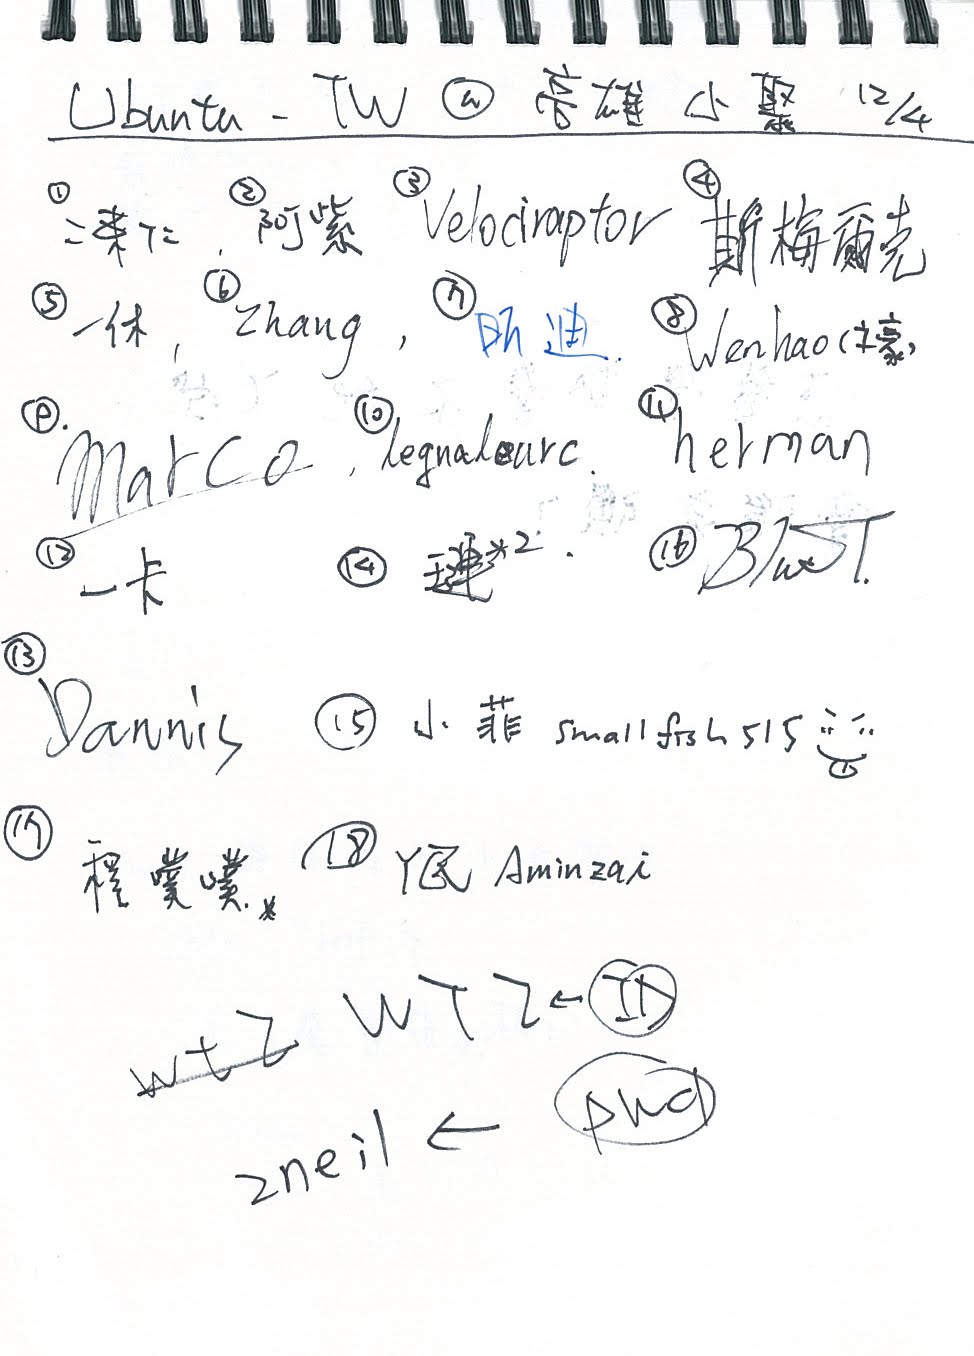 Ubuntu - TW @ 高雄 小聚 12/4
① 凍仁 , ② 阿紫 ③ Velociraptor ④ 斯梅爾克
⑤ 一休 , ⑥ Zhang , ⑦ 昕迪. ⑧ Wenhao(壕)
⑨. Marco , ⑩ legnaleurc. ⑪ herman
⑫ 一卡 ⑭ 璉*2. ⑯ BlueT.
⑬ Dannis ⑮ 小菲 smallfish515
⑰ 程噗噗.* ⑱ 丫民 Aminzai
wtz WTZ ← ID
zneil ← pwd